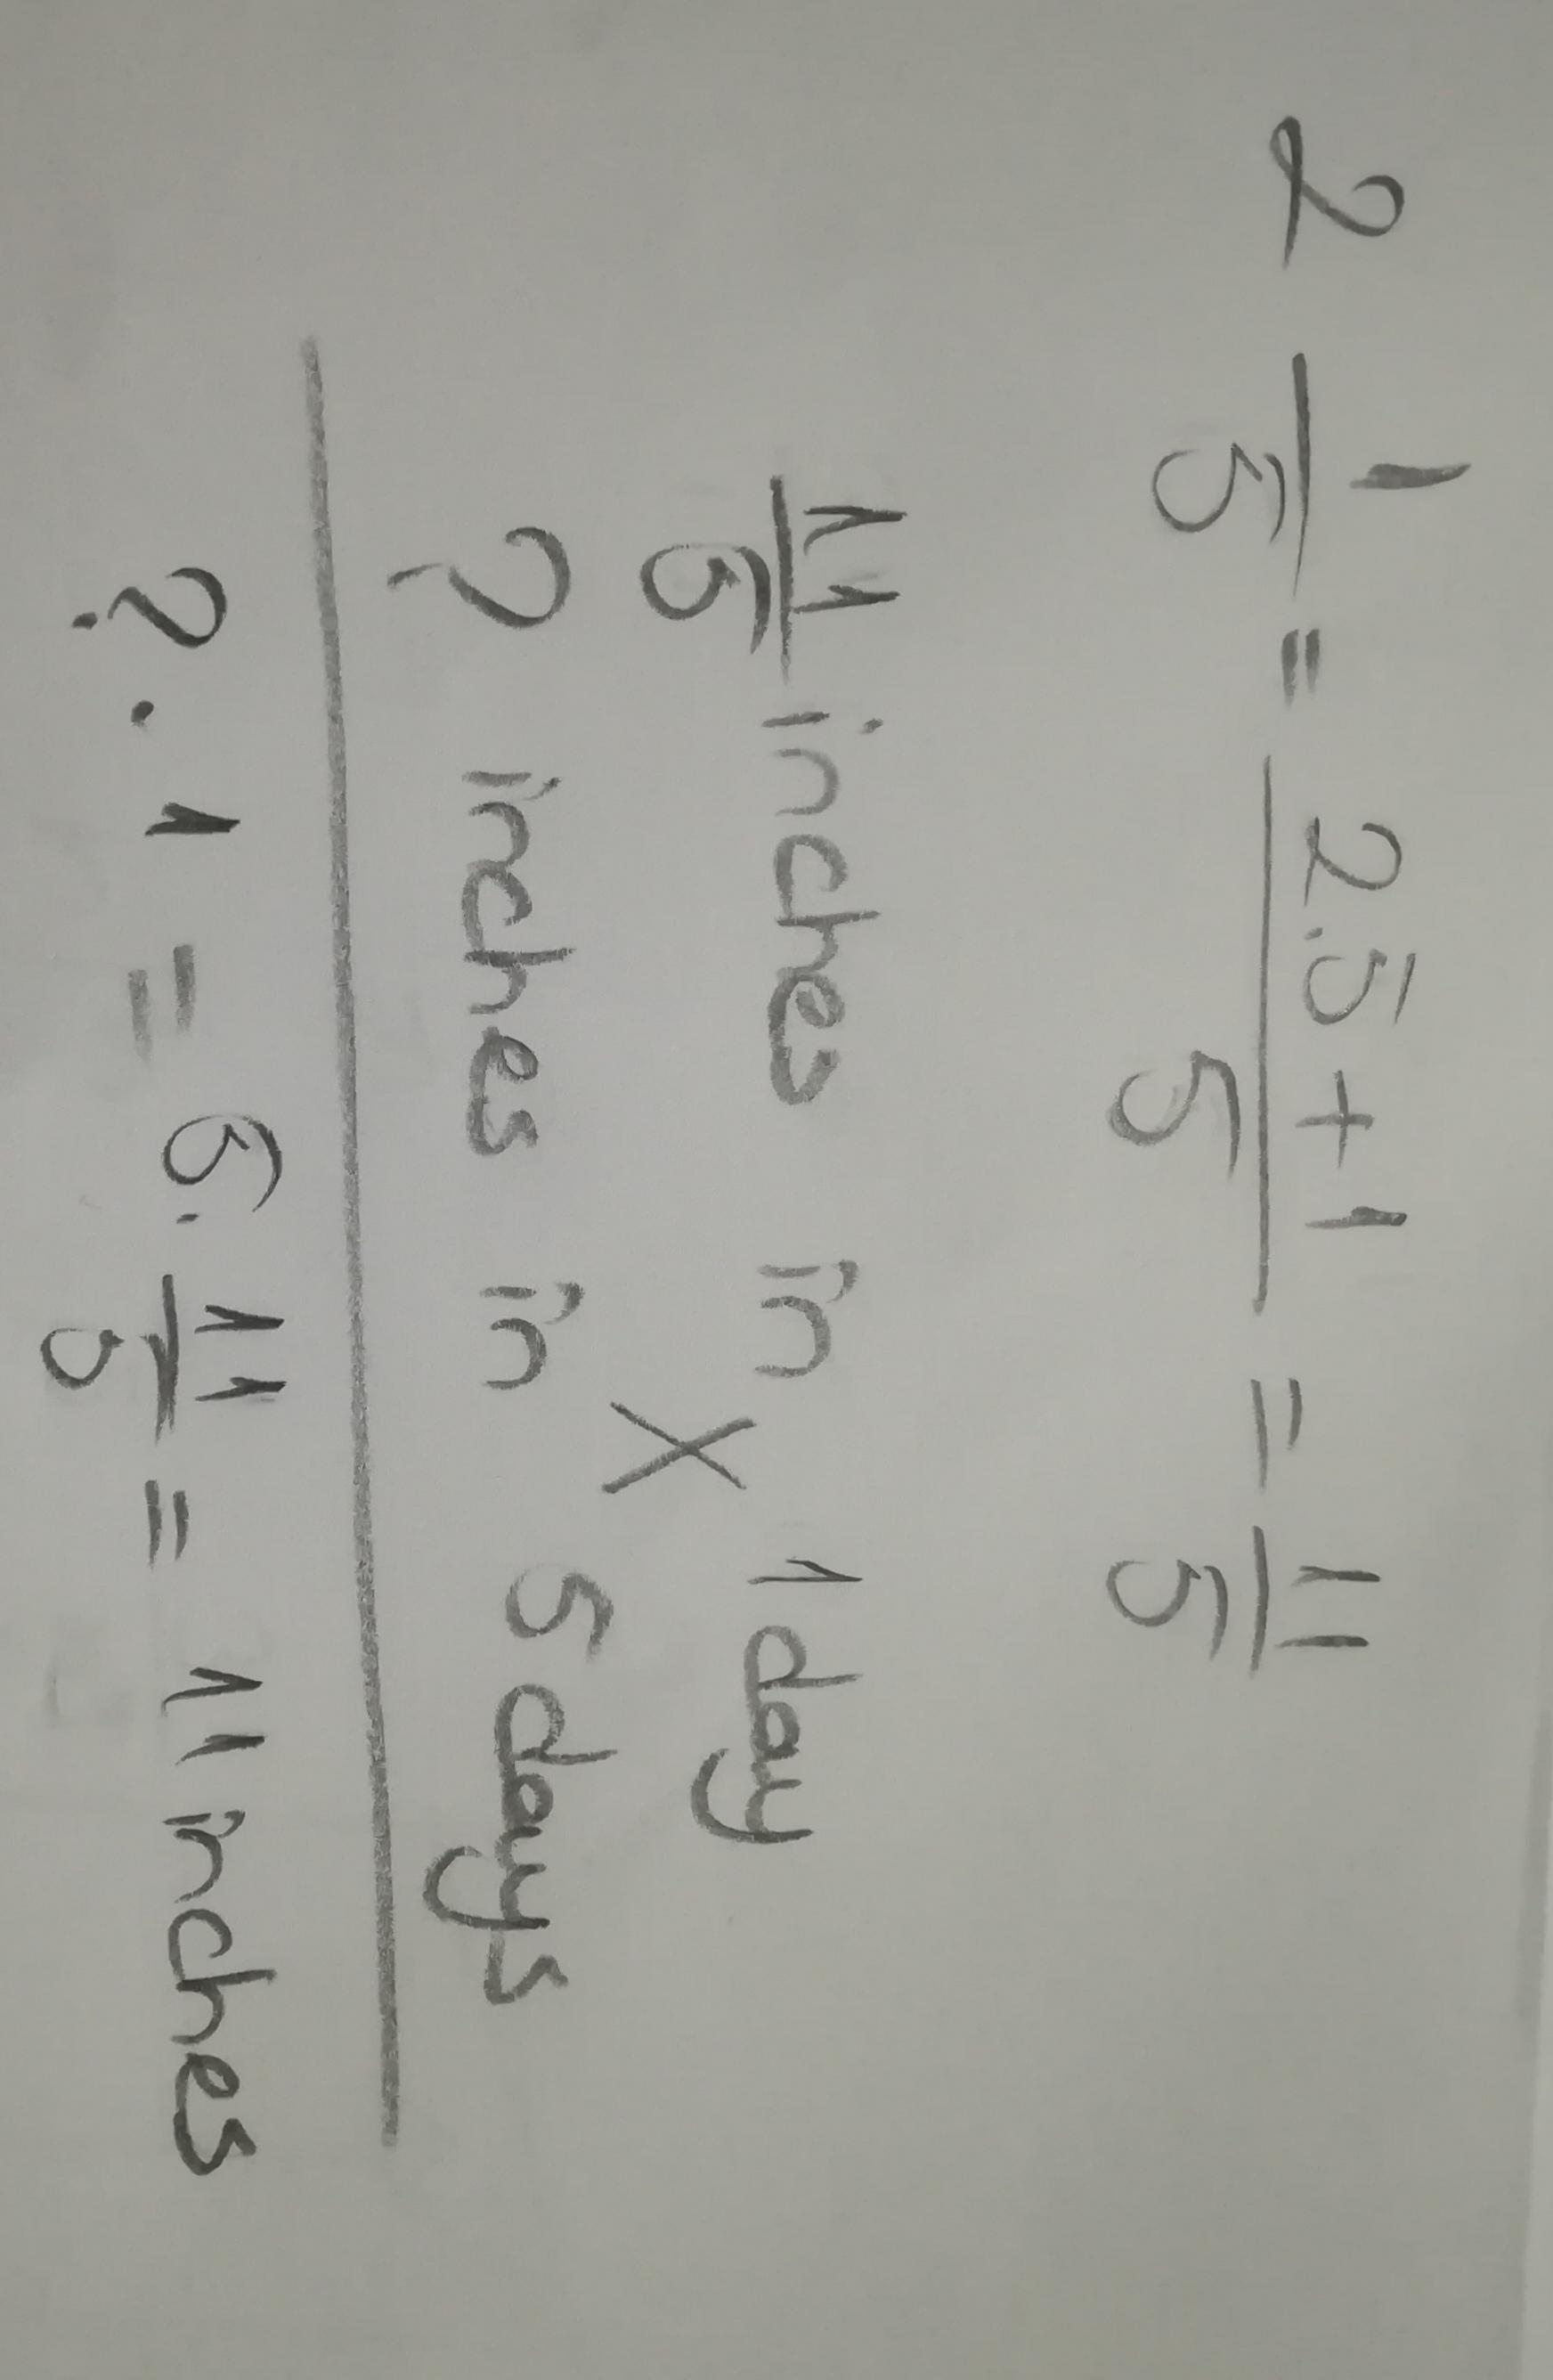 2 1/5 = (2.5+1)/5 = 11/5
11/5 inches in 1 day
X
? inches in 5 days
? . 1 = 5. 11/5 = 11 inches